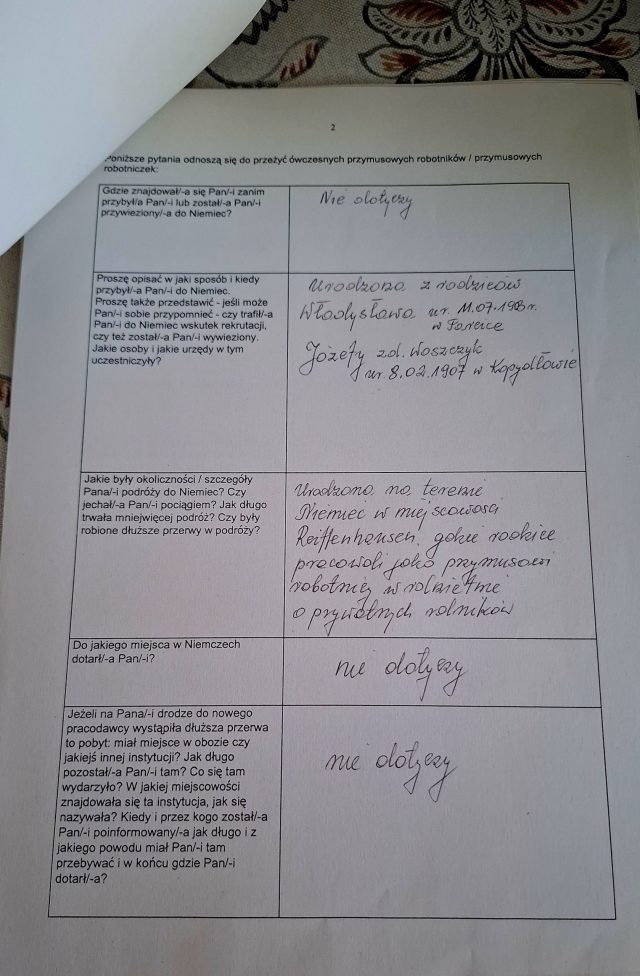 2
Poniższe pytania odnoszą się do przeżyć ówczesnych przymusowych robotników / przymusowych
robotniczek:
Gdzie znajdował/-a się Pan/-i zanim
przybył/a Pan/-i lub został/-a Pan/-i
przywieziony/-a do Niemiec?
Nie dotyczy
Proszę opisać w jaki sposób i kiedy
przybył/-a Pan/-i do Niemiec.
Proszę także przedstawić - jeśli może
Pan/-i sobie przypomnieć - czy trafił/-a
Pan/-i do Niemiec wskutek rekrutacji,
czy też został/-a Pan/-i wywieziony.
Jakie osoby i jakie urzędy w tym
uczestniczyły?
Urodzona z rodziców
Władysława ur. 11.07.1903 r.
w
Józefy z d. Woszczyk
ur. 8.02.1907 w Kopydłowie
Jakie były okoliczności / szczegóły
Pana/-i podróży do Niemiec? Czy
jechał/-a Pan/-i pociągiem? Jak długo
trwała mniejwięcej podróż? Czy były
robione dłuższe przerwy w podróży?
Urodzona na terenie
Niemiec w miejscowości
Reiffenhausen, gdzie rodzice
pracowali jako przymusowi
robotnicy w rolnictwie
u prywatnych rolników
Do jakiego miejsca w Niemczech
dotarł/-a Pan/-i?
nie dotyczy
Jeżeli na Pana/-i drodze do nowego
pracodawcy wystąpiła dłuższa przerwa
to pobyt: miał miejsce w obozie czy
jakiejś innej instytucji? Jak długo
pozostał/-a Pan/-i tam? Co się tam
wydarzyło? W jakiej miejscowości
znajdowała się ta instytucja, jak się
nazywała? Kiedy i przez kogo został/-a
Pan/-i poinformowany/-a jak długo i z
jakiego powodu miał Pan/-i tam
przebywać i w końcu gdzie Pan/-i
dotarł/-a?
nie dotyczy